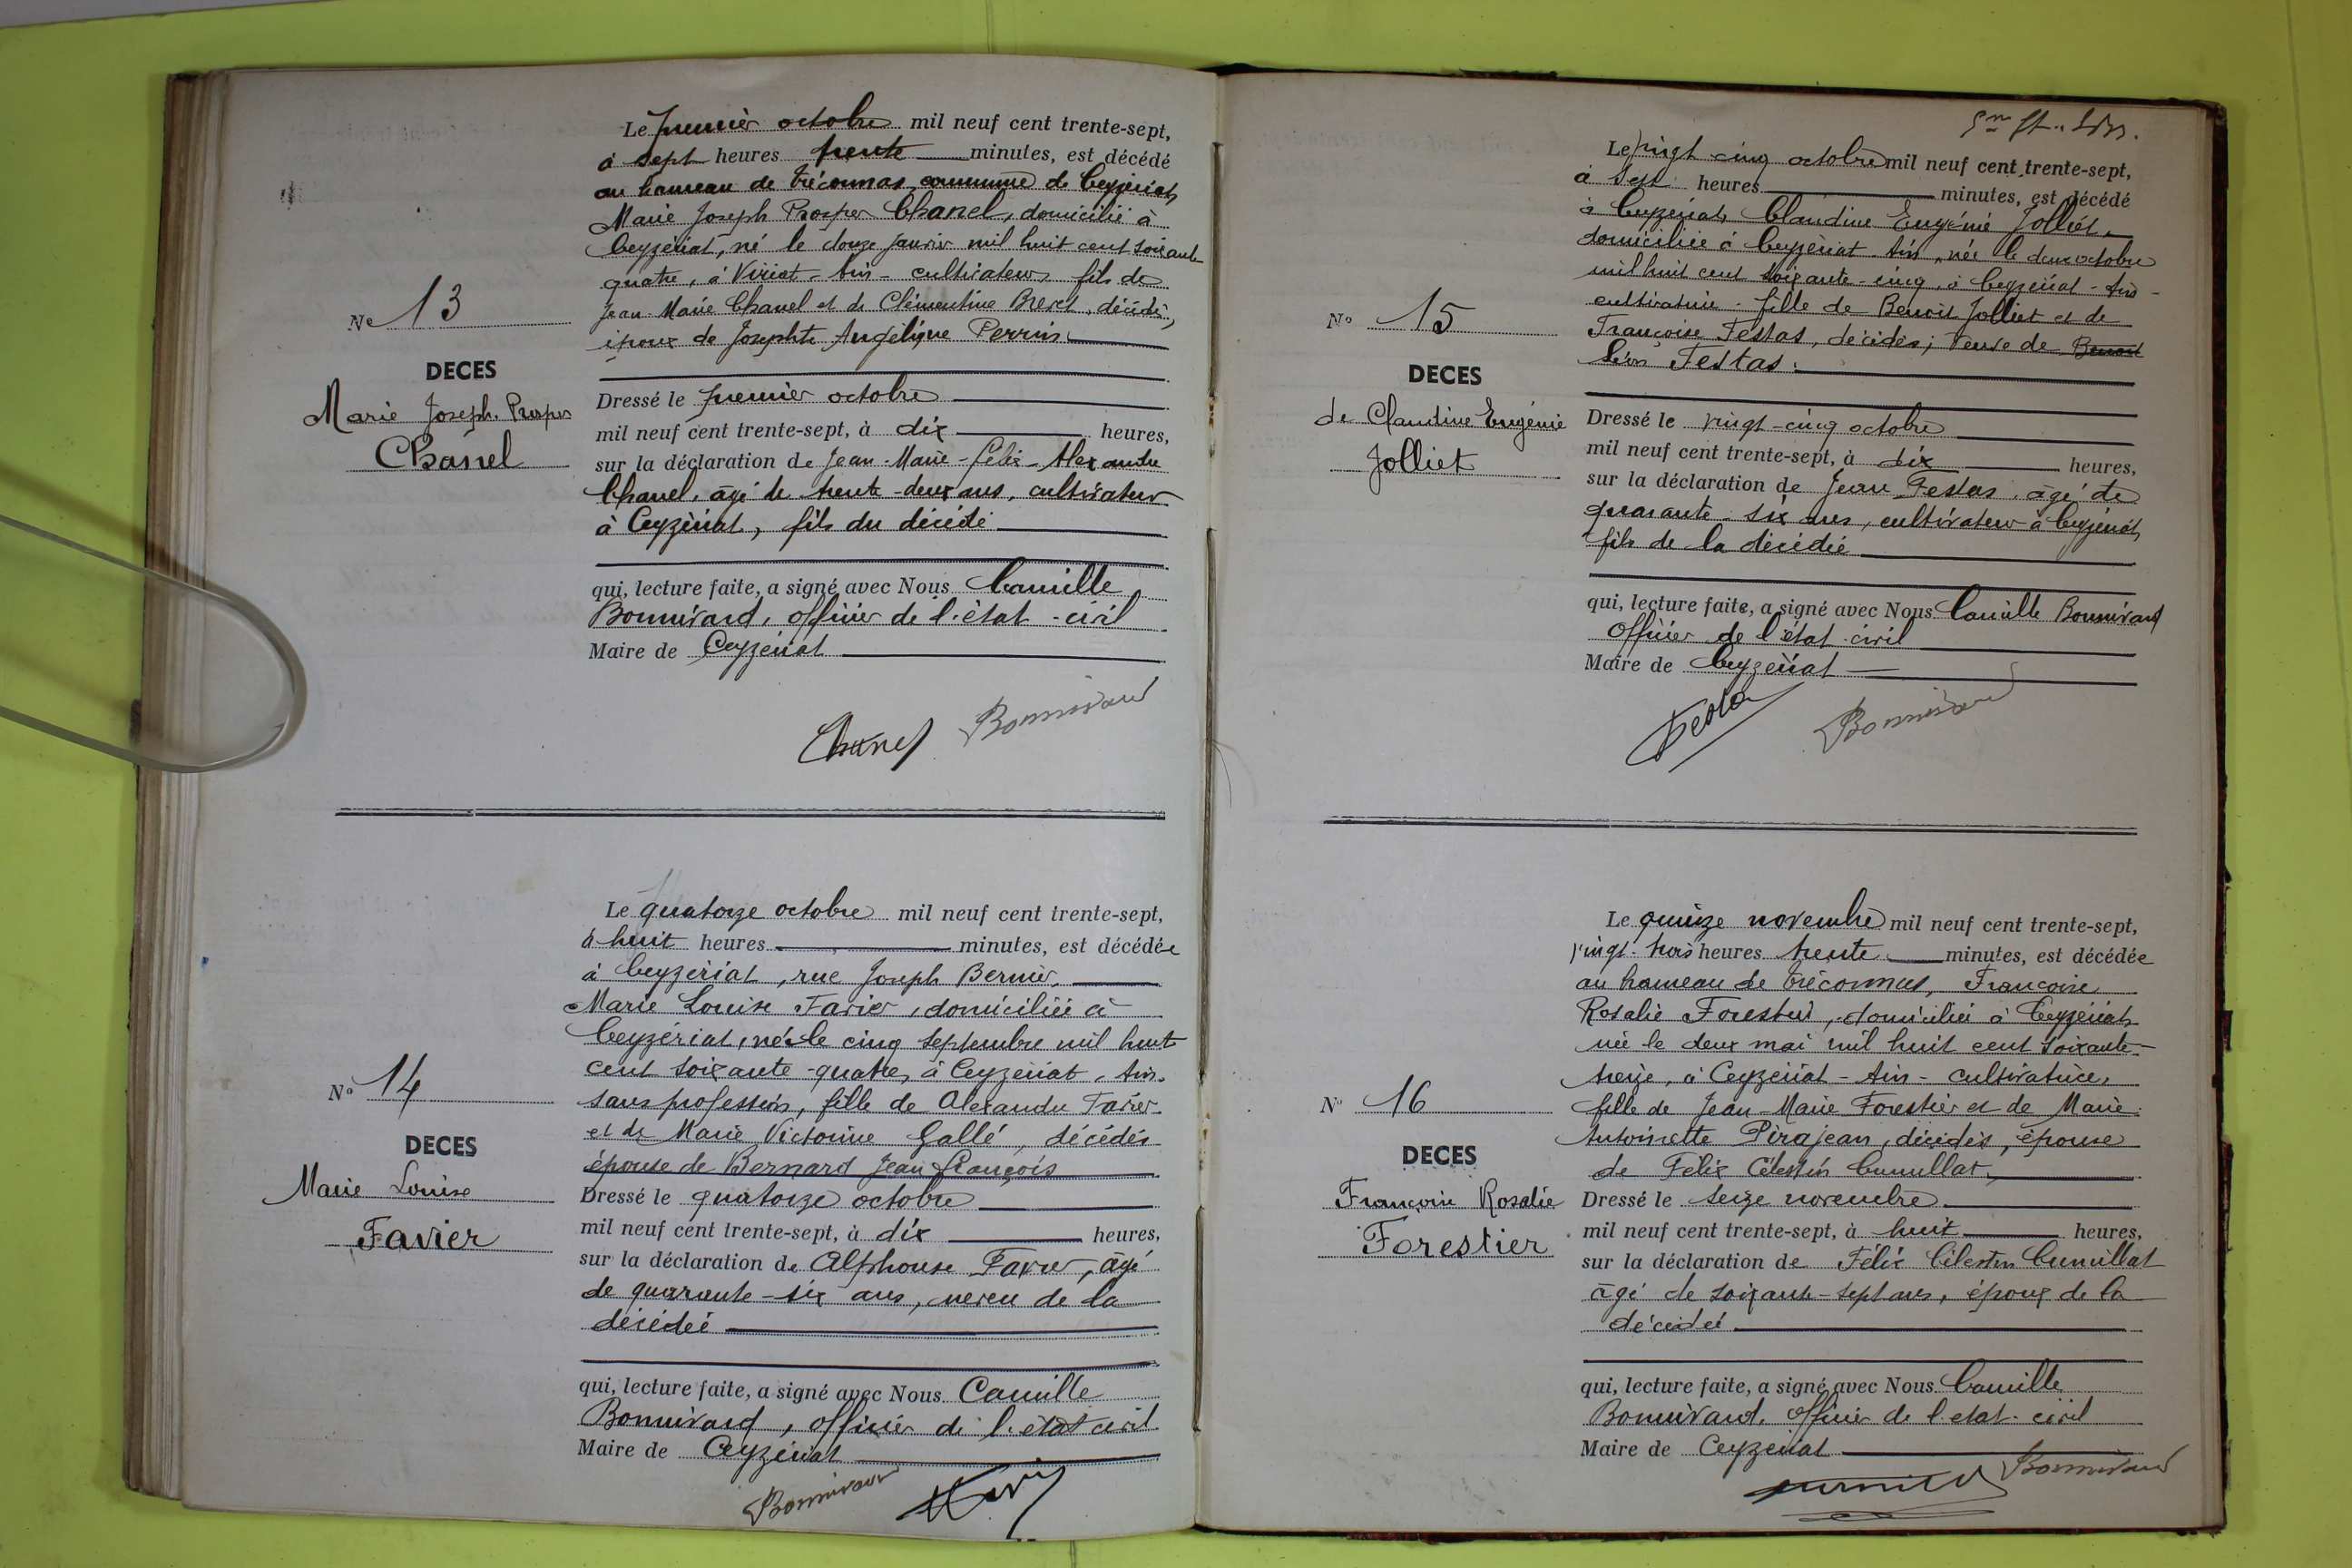 Le premier octobre mil neuf cent trente-sept,
à sept heures trente minutes, est décédé
au hameau de Tréconnas, commune de Ceyzériat,
Marie Joseph Prosper Chanel, domicilié à
Ceyzériat, né le douze janvier mil huit cent soixante
quatre, à Viriat - Ain - cultivateur, fils de
Jean Marie Chanel et de Clémentine Brevet, décédés,
époux de Josephte Angélique Perrin
No 13
DECES
Marie Joseph. Prosper
Chanel
Dressé le premier octobre
mil neuf cent trente-sept, à dix heures,
sur la déclaration de Jean-Marie-Félix-Alexandre
Chanel, âgé de trente-deux ans, cultivateur
à Ceyzériat, fils du décédé
qui, lecture faite, a signé avec Nous Camille
Bonnivard, officier de l'état-civil
Maire de Ceyzériat
Chanel Bonnivard
Le quatorze octobre mil neuf cent trente-sept,
à huit heures minutes, est décédée
à Ceyzériat, rue Joseph Bernier,
Marie Louise Favier, domiciliée à
Ceyzériat, née le cinq septembre mil huit
cent soixante-quatre, à Ceyzériat, Ain.
sans profession, fille de Alexandre Favier
et de Marie Victorine Gallé, décédés
épouse de Bernard Jean François
No 14
DECES
Marie Louise
Favier
Dressé le quatorze octobre
mil neuf cent trente-sept, à dix heures,
sur la déclaration de Alphonse Favier, âgé
de quarante-six ans, neveu de la
décédée
qui, lecture faite, a signé avec Nous Camille
Bonnivard, officier de l'état civil
Maire de Ceyzériat
Bonnivard
Le vingt-cinq octobre mil neuf cent trente-sept,
à sept heures minutes, est décédé
à Ceyzériat, Claudine Eugénie Jolliet,
domiciliée à Ceyzériat-Ain, née le deux octobre
mil huit cent soixante-cinq, à Ceyzériat-Ain-
cultivatrice - fille de Benoit Jolliet et de
Françoise Festas, décédés; veuve de Benoit
Léon Festas.
No 15
DECES
de Claudine Eugénie
Jolliet
Dressé le vingt-cinq octobre
mil neuf cent trente-sept, à dix heures,
sur la déclaration de Jean Festas, âgé de
quarante-six ans, cultivateur à Ceyzériat,
fils de la décédée
qui, lecture faite, a signé avec Nous Camille Bonnivard
Officier de l'état-civil
Maire de Ceyzériat
Festas Bonnivard
Le quinze novembre mil neuf cent trente-sept,
vingt-trois heures trente minutes, est décédée
au hameau de Tréconnas, Françoise
Rosalie Forestier, domiciliée à Ceyzériat,
née le deux mai mil huit cent soixante-
treize, à Ceyzériat - Ain - cultivatrice,
fille de Jean-Marie Forestier et de Marie
Antoinette Pirajean, décédés, épouse
de Félix Célestin Cumillat,
No 16
DECES
Françoise Rosalie
Forestier
Dressé le seize novembre
mil neuf cent trente-sept, à huit heures,
sur la déclaration de Félix Célestin Cumillat
âgé de soixante-sept ans, époux de la
décédée
qui, lecture faite, a signé avec Nous Camille
Bonnivard, officier de l'etat-civil
Maire de Ceyzériat
Bonnivard